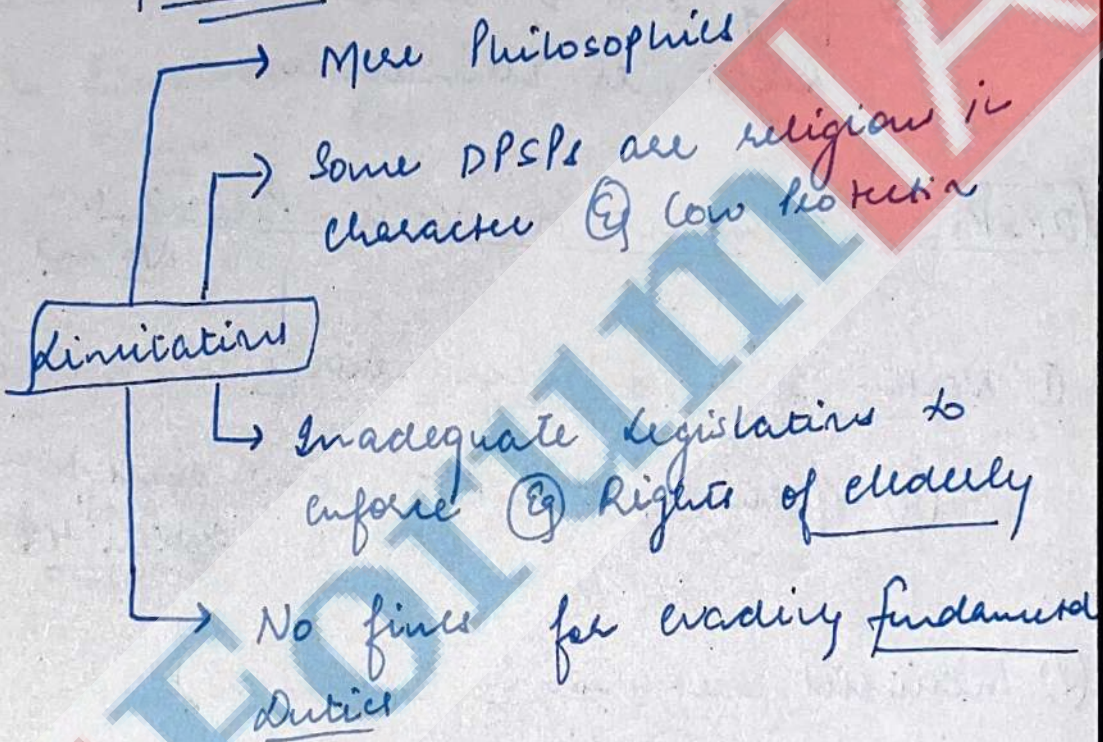 Mere Philosophies
Some DPSPs are religious in
character Eg Cow Protection
Limitations
Inadequate Legislations to
enforce Eg Rights of elderly
No fines for evading fundamental
Duties
Forum IA